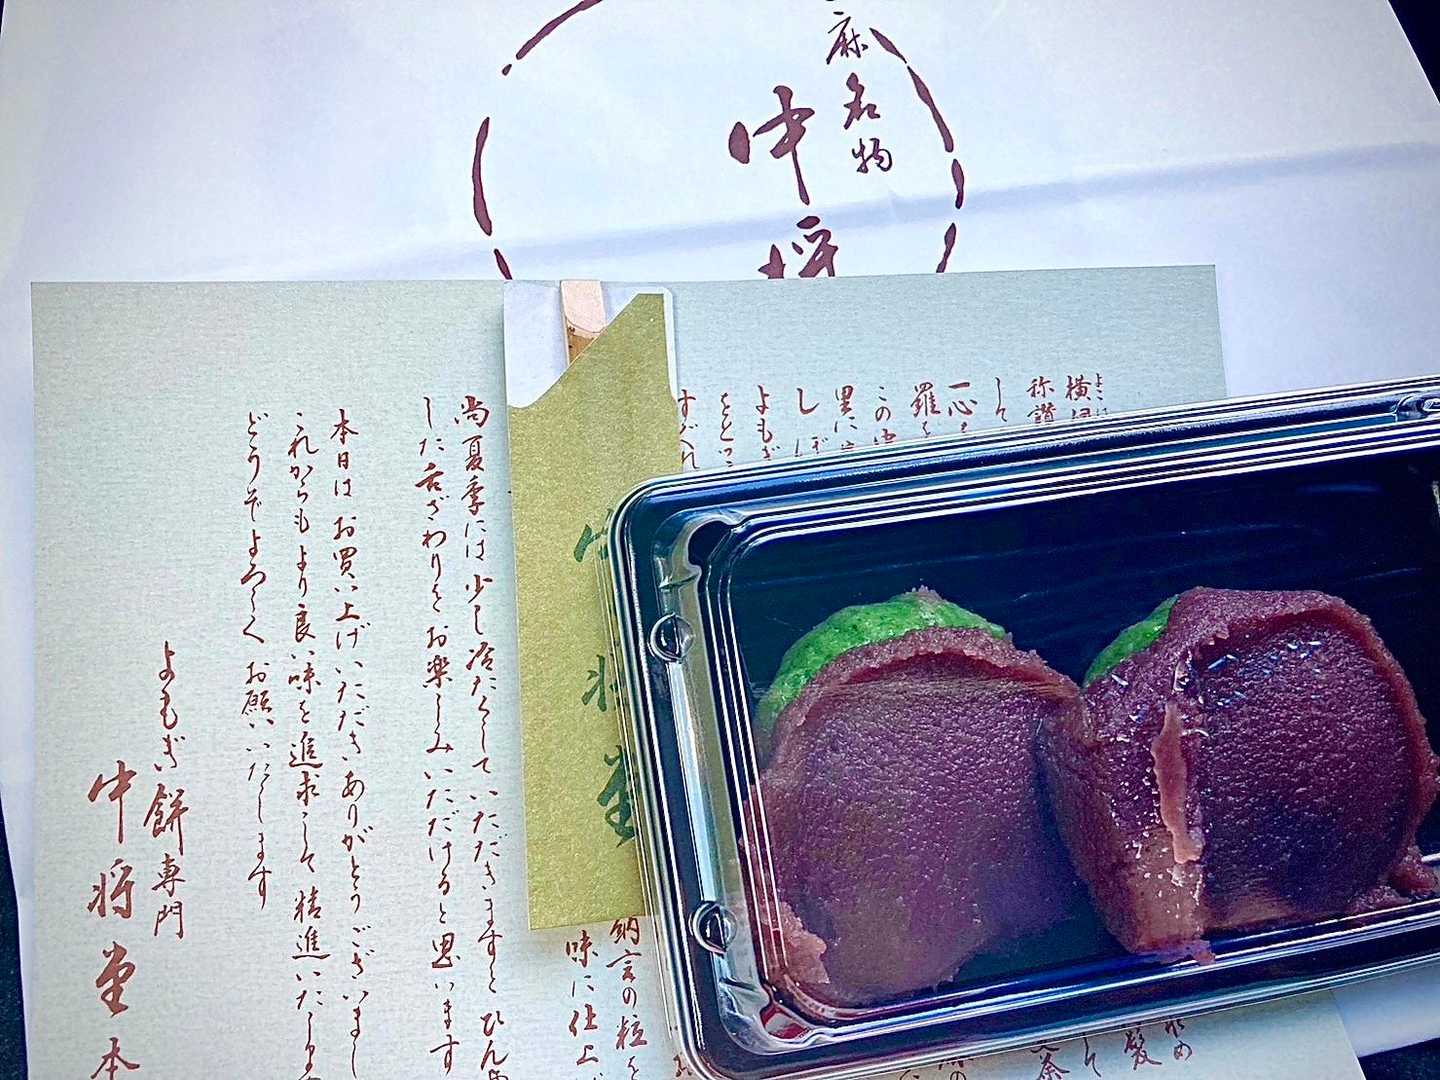 麻名物
中将
横
称讃
して
一心
羅
この中
里に
しぼ
よもぎ
すぐれ
納言の粒を
味に仕上げ
中将堂
尚夏季には少し冷たくしていただきますとひん
した舌ざわりをお楽しみいただけると思います
本日はお買い上げいただきありがとうございまし
これからもより良い味を追求して精進いたしま
どうぞよろしくお願いいたします
よもぎ餅専門
中将堂本